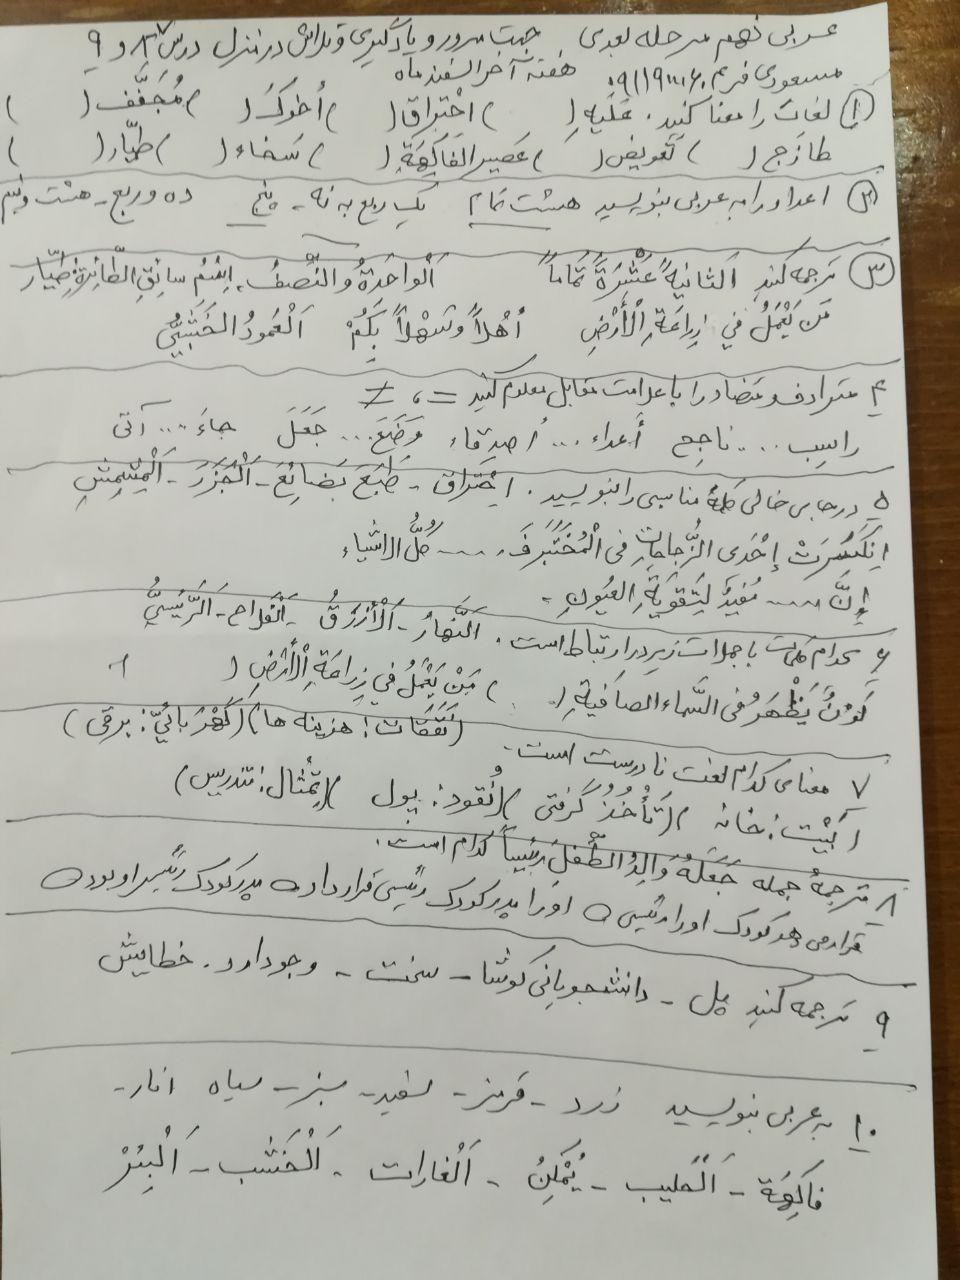 عربی نهم مرحله بعدی جهت مرور و یادگیری و تلاش در منزل درس ۷ ۸ و ۹
مسعودی فر هفته آخر اسفند ماه
① لغات را معنا کنید. عَلَیهِ ( ) اِحْتِراق ( ) أَخوکَ ( ) مُجَفَّف ( )
طازَج ( ) تَعویض ( ) عَصیر الفاکِهَةِ ( ) سَخاء ( ) طَیّار ( )
② اعداد را به عربی بنویسید هشت تمام یک ربع به نه - پنج ده و ربع - هشت و نیم
③ ترجمه کنید اَلثانیةَ عَشْرَةَ تَماماً اَلْواحِدَةُ و النِّصفُ. اِسْمُ سائِقِ الطّائِرَةِ طَیّار
مَن یَعْمَلُ في زِراعَةِ الْأَرْضِ أَهْلاً وَ سَهْلاً بِکُمْ اَلْعَمودُ الخَشَبِیُّ
۴ مترادف و متضاد را با علامت مقابل معلوم کنید = ، ≠
راسِب .... ناجِح أعداء ... أصدِقاء وَضَعَ ... جَعَلَ جاءَ ... أتی
۵ در جای خالی کلمهٔ مناسبی را بنویسید. اِحْتِراق - طَبَعَ بَضائِعَ - اَلْجَزَرَ - اَلْمِشْمِشِ
اِنْکَسَرَتْ إحْدَی الزُّجاجاتِ فِی الْمُخْتَبَرِ فَـ ...... کُلُّ الاشیاء
إنَّ ...... مُفیدٌ لِتَقْویَةِ العُیونِ -
۶ کدام کلمات با جملات زیر در ارتباط است. النَّهارُ - اَلْأَزرَقُ - اَلْفَلاح - اَلرَّئیسیُّ
لَونٌ یَظْهَرُ فی السَّماء الصافیةِ ( ) مَنْ یَعْمَلُ في زِراعَةِ الْأَرْضِ ( )
۷ معنای کدام لغت نادرست است. (نَفَقات: هزینه ها) (کَهْرَبائیّ: برقی)
(بَیْت: خانه) (تَأْخُذُ: گرفتی) (نُقود: پول) (تِمْثال: تندیس)
۸ ترجمهٔ جمله جَعَلَهُ والِدُ الطِّفْلِ رَئیساً کدام است.
قرار می دهد کودک او را رئیس ○ او را پدر کودک رئیس قرار داد ○ پدر کودک رئیس او بود ○
۹ ترجمه کنید پل - دانشجویانی کوشا - سخت - وجود دارد. خطایش
۱۰ به عربی بنویسید زرد - قرمز - سفید - سبز - سیاه انار -
فاکِهَة - اَلْحلیب - یُمْکِنُ - اَلْغارات - اَلْخَشَب - اَلْبِئرْ